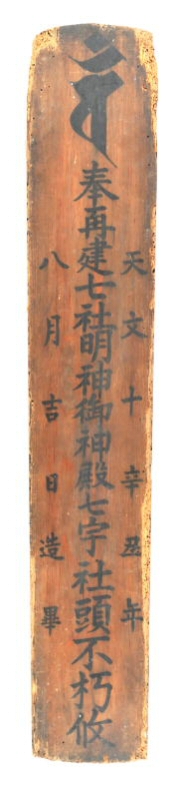 天文十辛丑年
奉再建七社明神御神殿七宇社頭不朽攸
八月吉日造畢